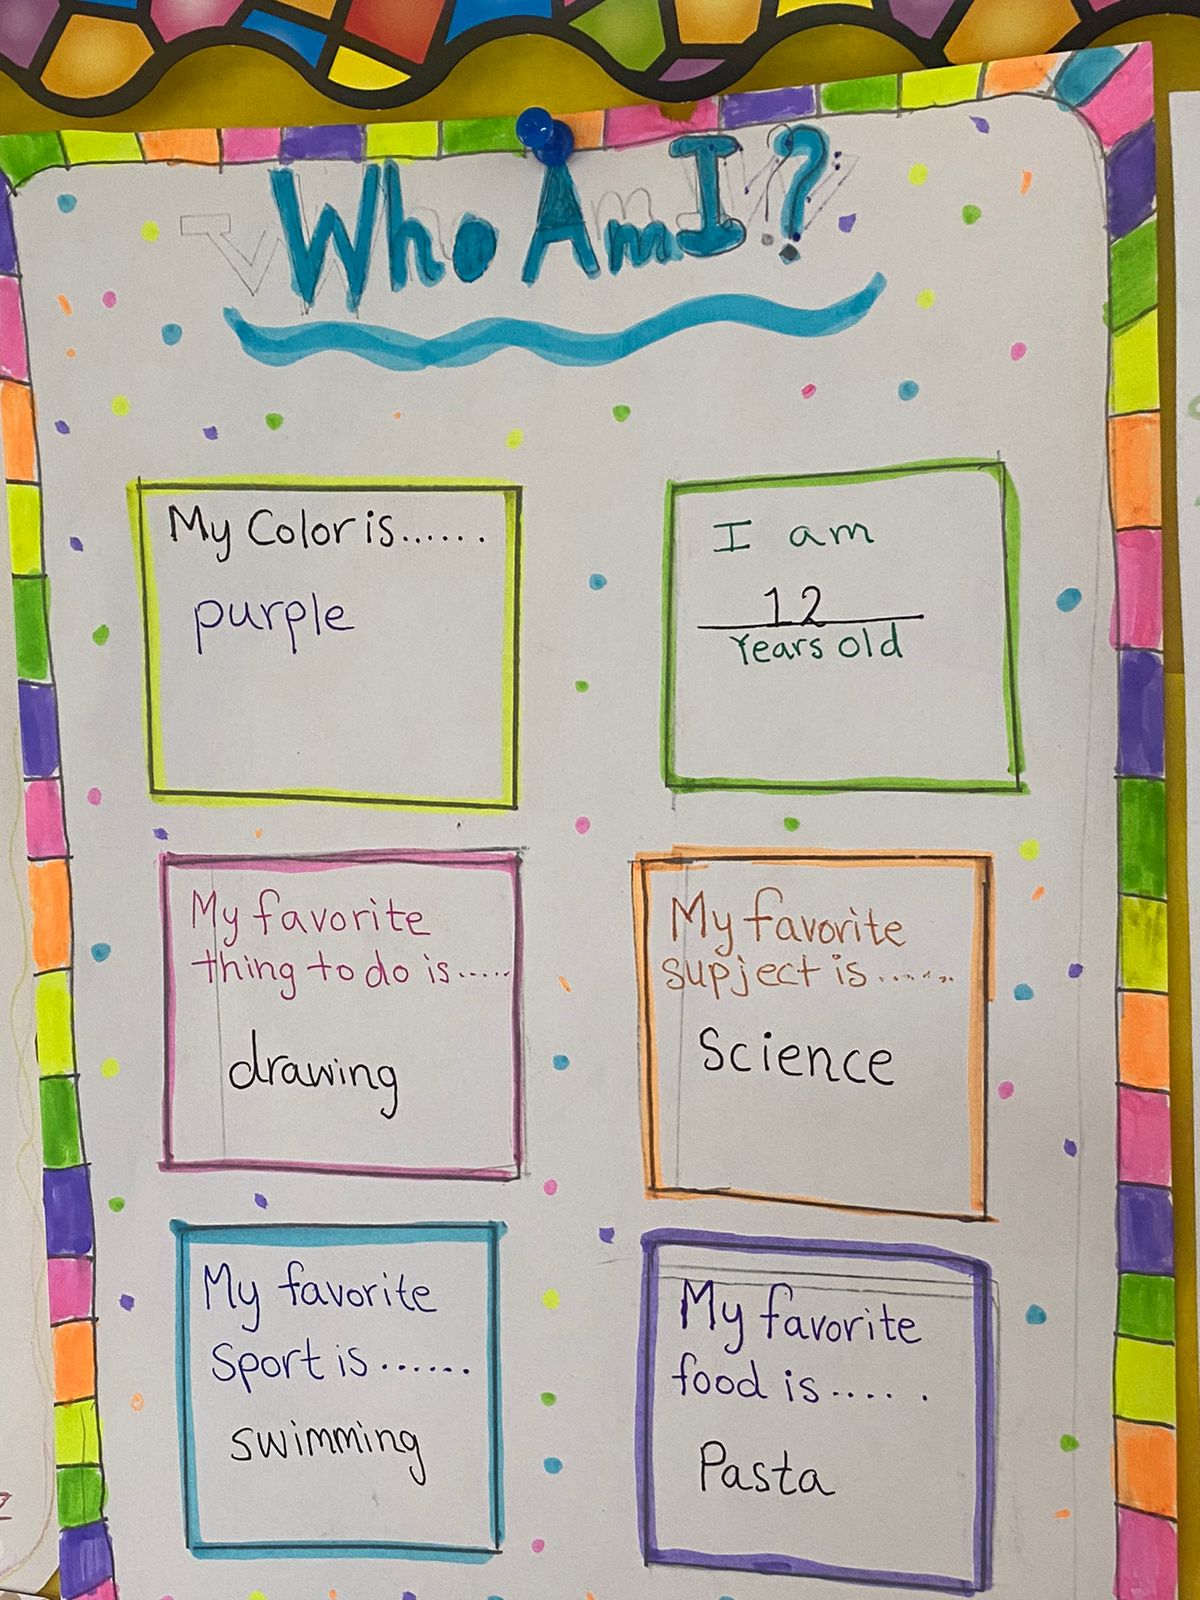 Who Am I?
My Color is......
purple
I am
12
Years old
My favorite
thing to do is.....
drawing
My favorite
supject is ......
Science
My favorite
Sport is ......
swimming
My favorite
food is ..... .
Pasta